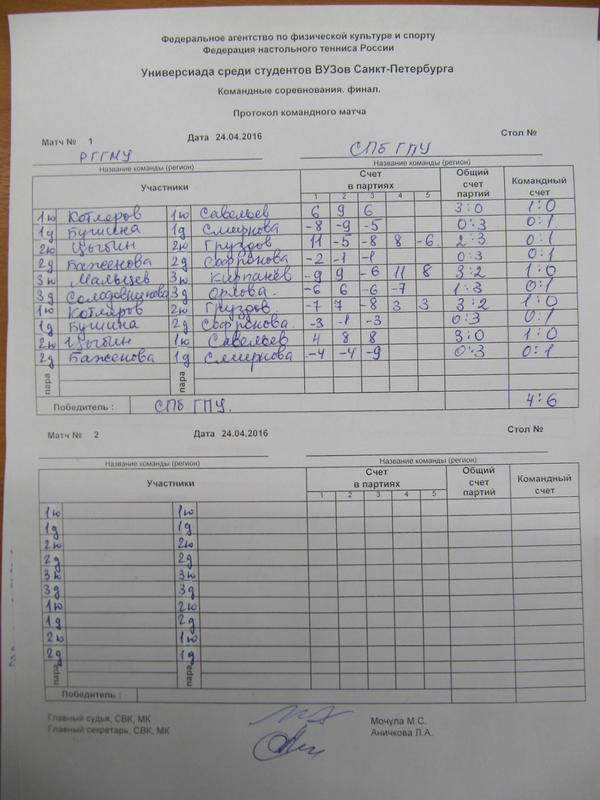 Федеральное агентство по физической культуре и спорту
Федерация настольного тенниса России
Универсиада среди студентов ВУЗов Санкт-Петербурга
Командные соревнования. финал.
Протокол командного матча
Матч № 1 Дата 24.04.2016 Стол №
РГГМУ СПб ГПУ
Название команды (регион) Название команды (регион)
Участники Счет в партиях Общий счет партий Командный счет
1 2 3 4 5
1ю Котляров 1ю Савельев 6 9 6 3:0 1:0
1д Бушина 1д Смирнова -8 -9 -5 0:3 0:1
2ю Цыбин 2ю Груздов 11 -5 -8 8 -6 2:3 0:1
2д Баженова 2д Софронова -2 -1 -1 0:3 0:1
3ю Малышев 3ю Кирпанёв -9 9 -6 11 8 3:2 1:0
3д Солодовникова 3д Орлова -6 6 -6 -7 1:3 0:1
1ю Котляров 2ю Груздов -7 7 -8 3 3 3:2 1:0
1д Бушина 2д Софронова -3 -1 -3 0:3 0:1
2ю Цыбин 1ю Савельев 4 8 8 3:0 1:0
2д Баженова 1д Смирнова -4 -4 -9 0:3 0:1
пара пара
Победитель : СПб ГПУ. 4:6
Матч № 2 Дата 24.04.2016 Стол №
Название команды (регион) Название команды (регион)
Участники Счет в партиях Общий счет партий Командный счет
1 2 3 4 5
1ю 1ю
1д 1д
2ю 2ю
2д 2д
3ю 3ю
3д 3д
1ю 2ю
1д 2д
2ю 1ю
2д 1д
пара пара
Победитель :
Главный судья, СВК, МК Мочула М.С.
Главный секретарь, СВК, МК Аничкова Л.А.